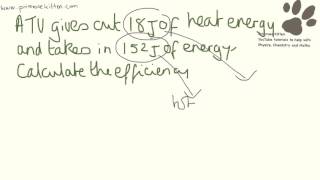 www.primrosekitten.com
A TV gives out 18J of heat energy
and takes in 152J of energy.
Calculate the efficiency
YouTube tutorials to help with
Physics, Chemistry and Maths